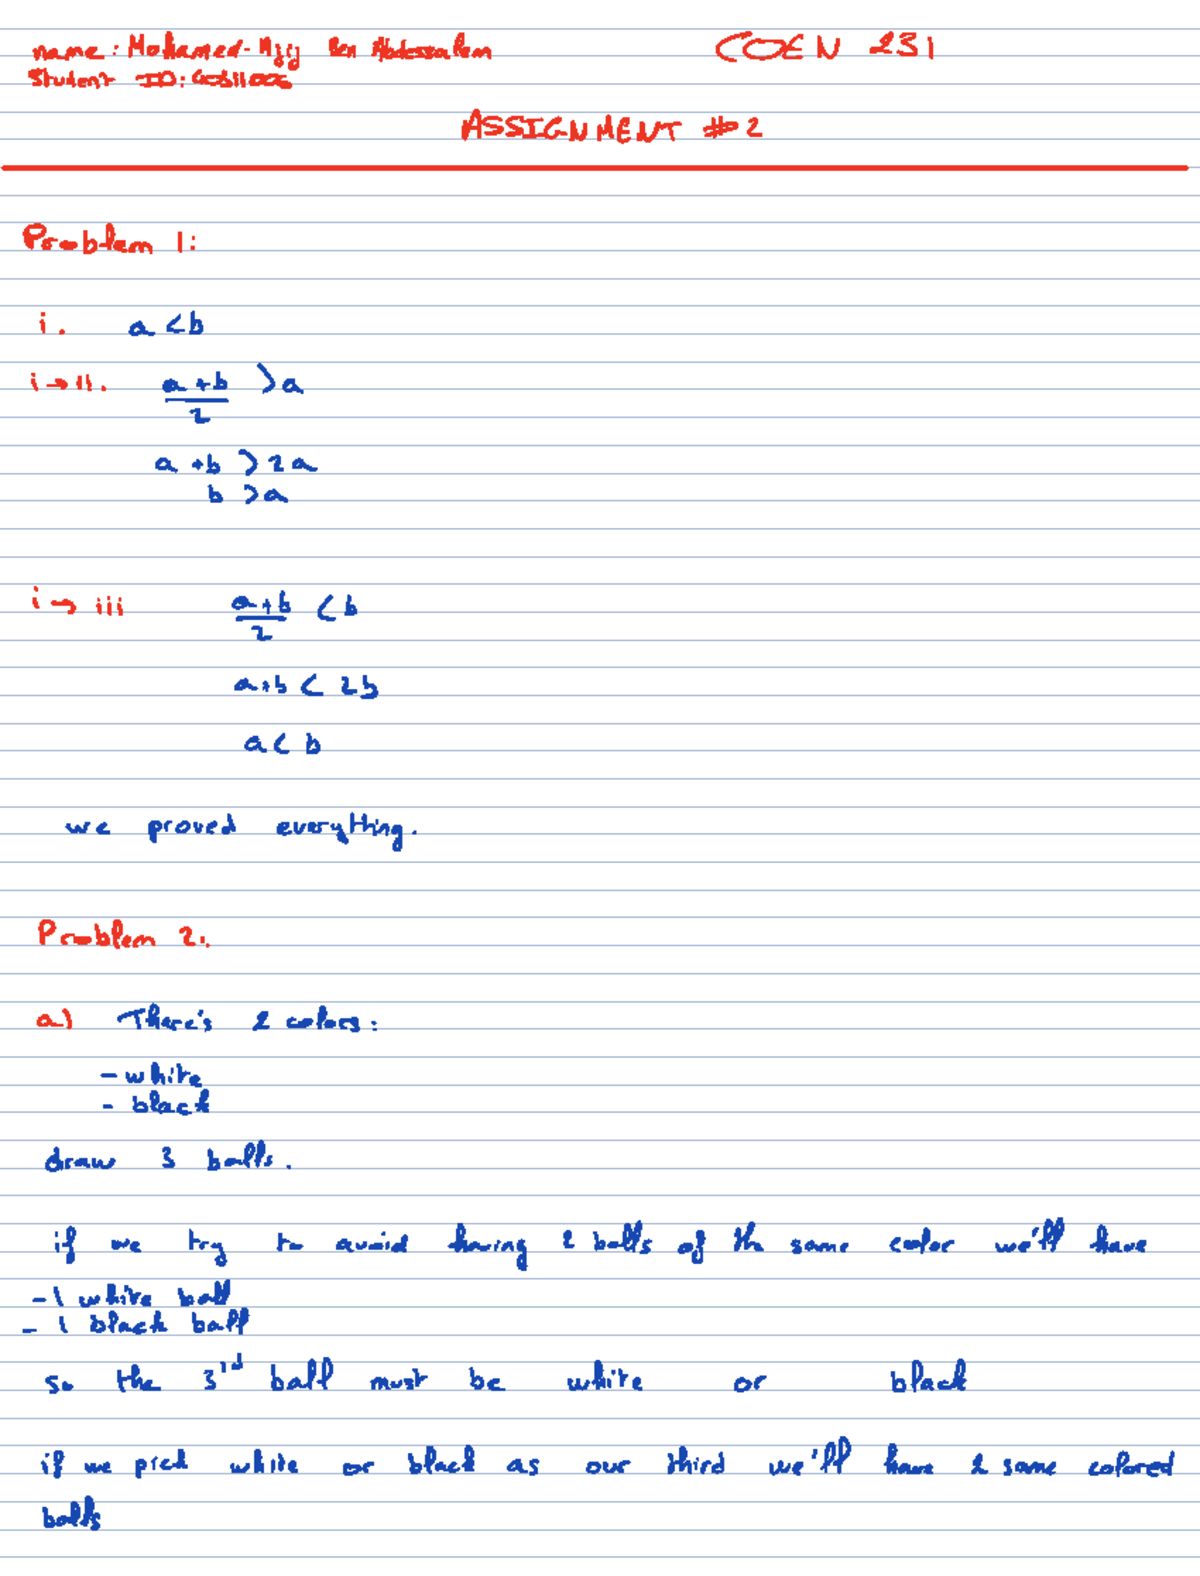 name: Mohamed-Aziz Ben Abdessalem
COEN 231
Student ID: 40311006
ASSIGNMENT #2
Problem 1:
i. a < b
i → ii. a + b > a
2
a + b > 2a
b > a
i → iii a + b < b
2
a + b < 2b
a < b
we proved everything.
Problem 2:
a) There's 2 colors:
- white
- black
draw 3 balls.
if we try to avoid having 2 balls of the same color we'll have
- 1 white ball
- 1 black ball
so the 3rd ball must be white or black
if we pick white or black as our third we'll have 2 same colored
balls